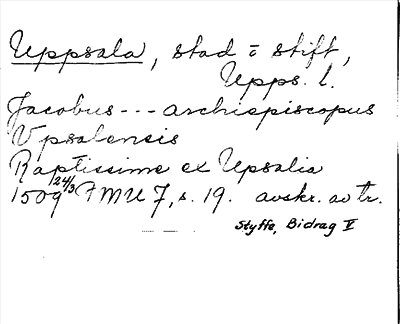 Uppsala, stad o stift,
Upps. l.
Jacobus --- archiepiscopus
Vpsalensis
Raptissime ex Upsalia
1509 24/3 FMU 7, s. 19. avskr. av tr.
Styffe, Bidrag V